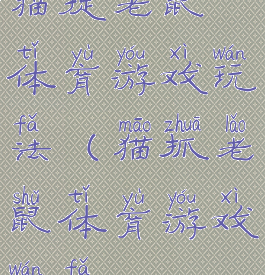 猫捉老鼠
tǐ yù yóu xì wán
体育游戏玩
fǎ māo zhuā lǎo
法（猫抓老
shǔ tǐ yù yóu xì
鼠体育游戏
wán fǎ